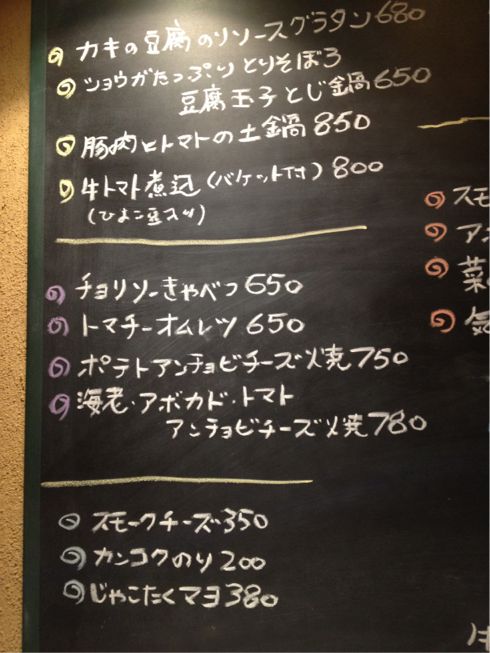 カキの豆腐のリソースグラタン680
ショウガたっぷりとりそぼろ
豆腐玉子とじ鍋650
豚肉とトマトの土鍋850
牛トマト煮込(バケット付)800
(ひよこ豆入り)
チョリソーきゃべつ650
トマチーオムレツ650
ポテトアンチョビチーズ焼750
海老・アボカド・トマト
アンチョビチーズ焼780
スモークチーズ350
カンコクのり200
じゃこたくマヨ380
スモ
菜
気